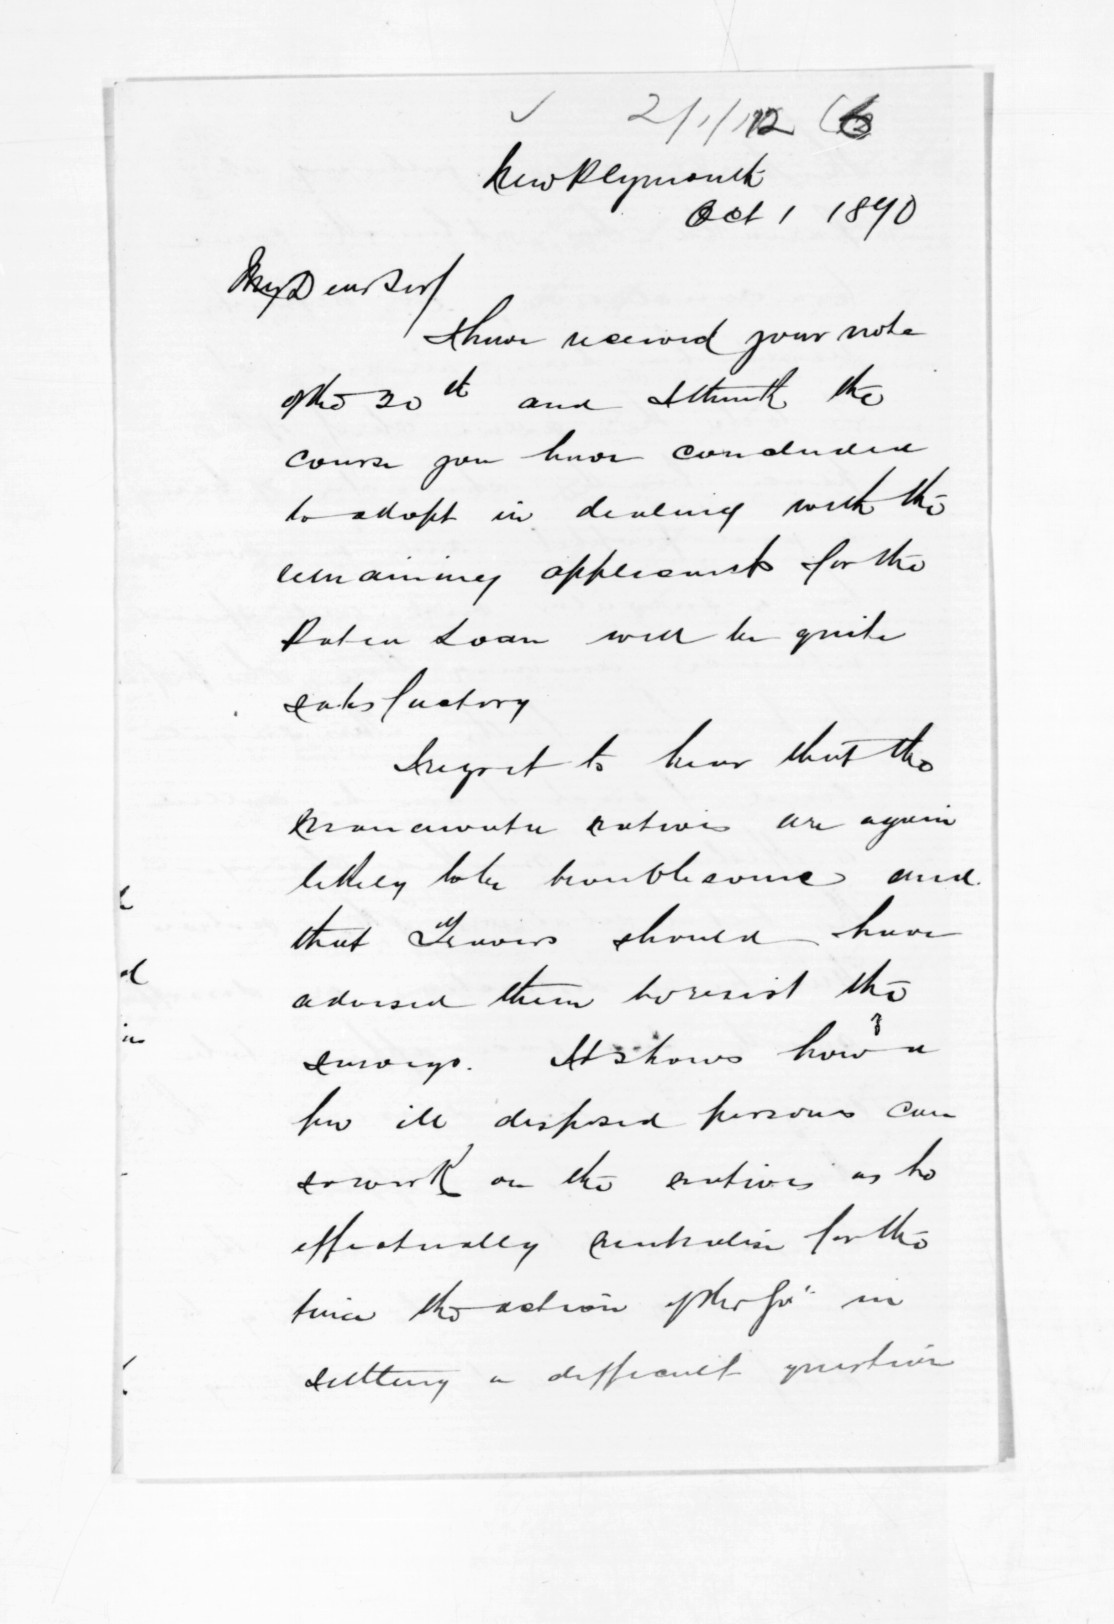 New Plymouth
Oct 1 1870
My Dear Sir/
I have received your note
of the 20th and I think the
course you have concluded
to adopt in dealing with the
remaining applicants for the
Patea Loan will be quite
satisfactory
I regret to hear that the
Manawatu natives are again
likely to be troublesome and
that Travers should have
advised them to resist the
surveys. It shows how a
few ill disposed persons can
so work on the natives as to
effectually neutralise for the
time the action of the Govt in
settling a difficult question